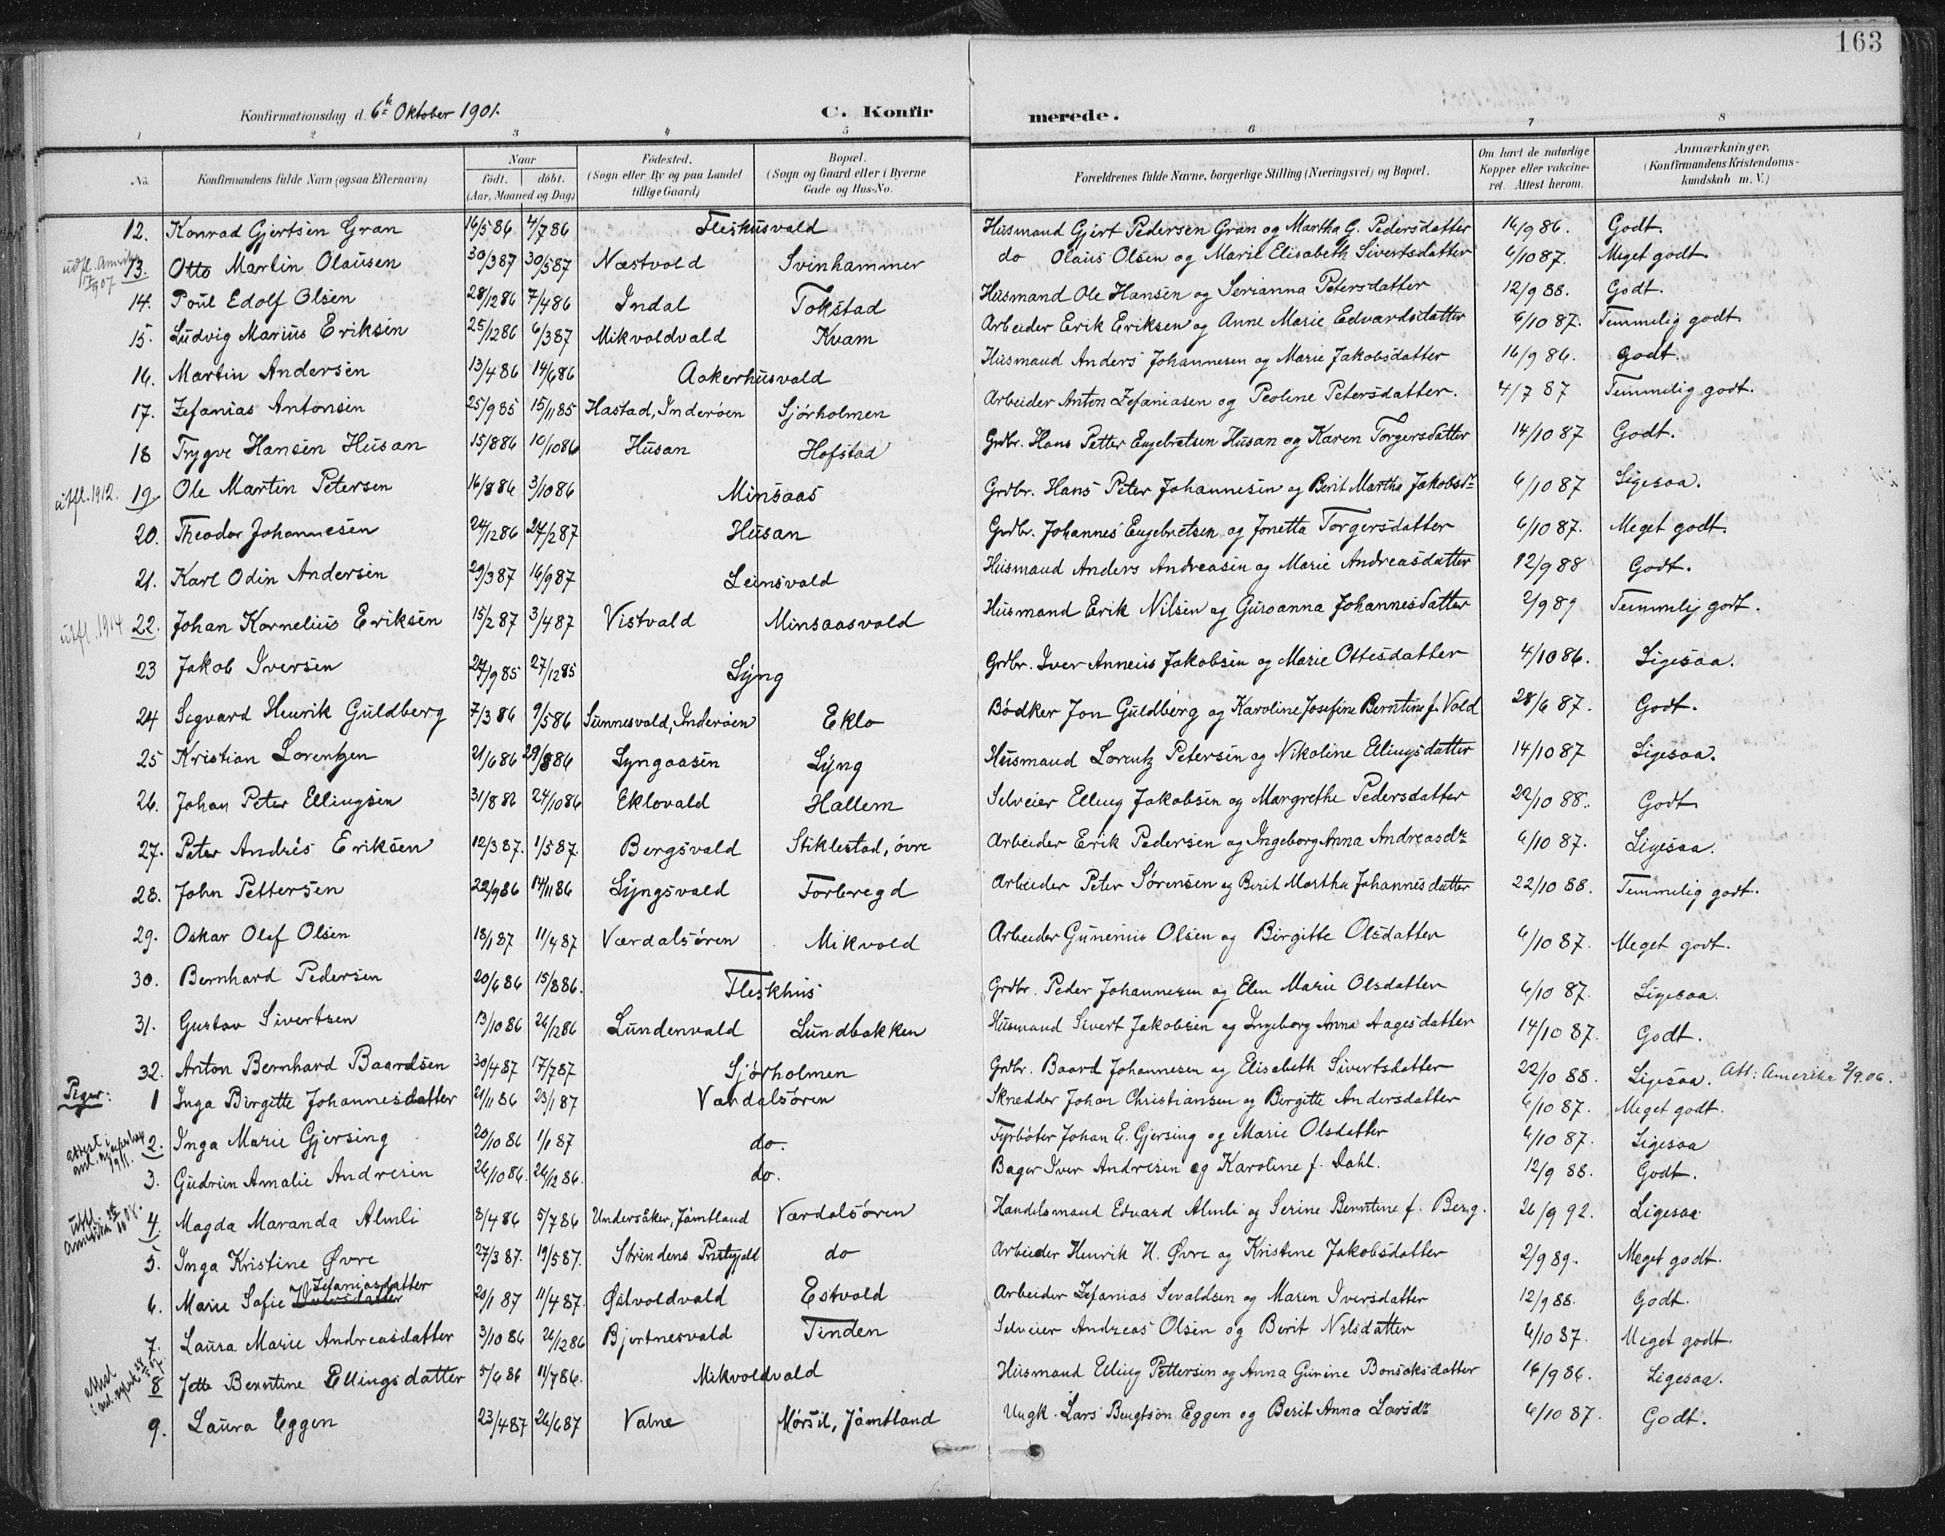 163
Konfirmationsdag d. 6te Oktober 1901. C. Konfirmerede.
1 2 3 4 5 6 7 8
No. Konfirmandens fulde Navn (ogsaa Efternavn) Naar født. døbt. (Aar, Maaned og Dag) Fødested. (Sogn eller By og paa Landet tillige Gaard) Bopæl. (Sogn og Gaard eller i Byerne Gade og Hus-No. Forældrenes fulde Navne, borgerlige Stilling (Næringsvei) og Bopæl. Om havt de naturlige Kopper eller vaccineret. Attest herom. Anmærkninger. (Konfirmandens Kristendomskundskab m. V.)
12. Konrad Gjertsen Gran 16/5 86 4/7 86 Fleskhusvald Husmand Gjert Pedersen Gran og Martha G. Pedersdatter 16/9 86. Godt.
13. Otto Martin Olausen 30/3 87 30/5 87 Næstvold Svinhammer do Olaus Olsen og Marie Elisabeth Sivertsdatter 6/10 87. Meget godt.
14. Poul Edolf Olsen 28/12 86 7/4 86 Indal Tokstad Husmand Ole Hansen og Serianna Petersdatter 12/9 88. Godt.
15. Ludvig Marius Eriksen 25/12 86 6/3 87 Mikvoldvald Kvam Arbeider Erik Eriksen og Anne Marie Edvardsdatter 6/10 87. Temmelig godt.
16. Martin Andersen 13/4 86 14/6 86 Aakerhusvald Husmand Anders Johannesen og Marie Jakobsdatter 16/9 86. Godt.
17. Zefanias Antonsen 25/9 85 15/11 85 Hastad, Inderøen Sjørholmen Arbeider Anton Zefaniasen og Peoline Petersdatter. 4/7 87 Temmelig godt.
18 Trygve Hansen Husan 15/8 86 10/10 86 Husan Hofstad Grdbr. Hans Petter Engebretsen Husan og Karen Torgersdatter 14/10 87 Godt.
utfl. 1912. 19 Ole Martin Petersen 16/8 86 3/10 86 Minsaas Grdbr. Hans Peter Johannesen og Berit Martha Jakobsdr 6/10 87 Ligesaa.
20. Theodor Johannesen 24/12 86 27/2 87 Husan Grdbr. Johannes Engebretsen og Jonetta Torgersdatter 6/10 87. Meget godt.
21. Karl Odin Andersen 29/3 87 16/9 87 Leinsvald Husmand Anders Andreasen og Marie Andreasdatter 12/9 88 Godt.
utfl. 1914 22. Johan Kornelius Eriksen 15/2 87 3/4 87 Vistvald Minsaasvald Husmand Erik Nilsen og Guroanna Johannesdatter 2/9 89 Temmelig godt.
23 Jakob Iversen 27/9 85 27/12 85 Lyng Grdbr. Iver Anneus Jakobsen og Marie Ottesdatter 4/10 86. Ligesaa.
24 Segvard Henrik Guldberg 7/3 86 9/5 86 Sunnesvald, Inderøen Eklo Bødker Jon Guldberg og Karoline Josefine Berntine f. Vold 28/6 87. Godt.
25 Kristian Lorentzen 21/6 86 29/8 86 Lyngaasen Lyng Husmand Lorentz Petersen og Nikoline Ellingsdatter 14/10 87 Ligesaa.
26. Johan Peter Ellingsen 31/8 86 24/10 86 Eklovald Hallem Selveier Elling Jakobsen og Margrethe Pedersdatter 22/10 88. Godt
27. Peter Andrés Eriksen 12/3 87. 1/5 87. Bergsvald Stiklestad, øvre Arbeider Erik Pedersen og Ingeborg Anna Andreasdr 6/10 87. Ligesaa.
28. John Pettersen 22/9 86 14/11 86 Lyngsvald Forbregd Arbeider Peter Sørensen og Berit Martha Johannesdatter 22/10 88. Temmelig godt.
29. Oskar Olaf Olsen 18/1 87 11/4 87 Værdalsøren Mikvold Arbeider Gunerius Olsen og Birgitte Olsdatter 6/10 87. Meget godt.
30. Bernhard Pedersen 20/6 86 15/8 86. Fleskhus Grdbr. Peder Johannesen og Elen Marie Olsdatter 6/10 87. Ligesaa.
31. Gustav Sivertsen 13/10 86 26/12 86 Lundenvald Lundbakken Husmand Sivert Jakobsen og Ingeborg Anna Aagesdatter 14/10 87. Godt.
32. Anton Bernhard Baardsen 30/4 87 17/7 87 Sjørholmen Grdbr. Baard Johannesen og Elisabeth Sivertsdatter 22/10 88. Ligesaa. Att: Amerika 2/9.06.
Piger: 1 Inga Birgitte Johannesdatter 21/11 86 23/1 87 Værdalsøren Skrædder Johan Christiansen og Birgitte Andersdatter 6/10 87. Meget godt.
2. Inga Marie Gjersing 20/10 86 1/1 87 do. Fyrbøter Johan E. Gjersing og Marie Olsdatter 6/10 87. Ligesaa
3. Gudrun Amalie Andresen 26/10 86. 26/12 86. do. Bager Iver Andresen og Karoline f. Dahl. 12/9 88. Godt.
4. Magda Maranda Almli 8/4 86 5/7 86 Undersåker, Jämtland Værdalsøren Handelsmand Edvard Almli og Serine Berntine f. Berg. 26/9 92. Ligesaa
5. Inga Kristine Øvre 27/3 87. 19/5 87. Strindens Prstgjeld do Arbeider Henrik H. Øvre og Kristine Jakobsdatter 2/9 89. Meget godt.
6. Marie Sofie Zefaniasdatter 20/1 87 11/4 87. Østvoldvald Estvold Arbeider Zefanias Sevaldsen og Maren Iversdatter 12/9 88. Godt.
7. Laura Marie Andreasdatter 3/10 86 26/12 86 Bjertnesvald Tinden Selveier Andreas Olsen og Berit Nilsdatter 6/10 87. Meget godt.
8 Jette Berntine Ellingsdatter 5/6 86 11/7 86. Mikvoldvald Husmand Elling Pettersen og Anna Gurine Bonsaksdatter 16/9 86. Ligesaa.
9. Laura Eggen 23/4 87 26/6 87 Valne Mørsil, Jämtland Ungk. Lars Bengtson Eggen og Berit Anna Larsdr 6/10 87. Godt.